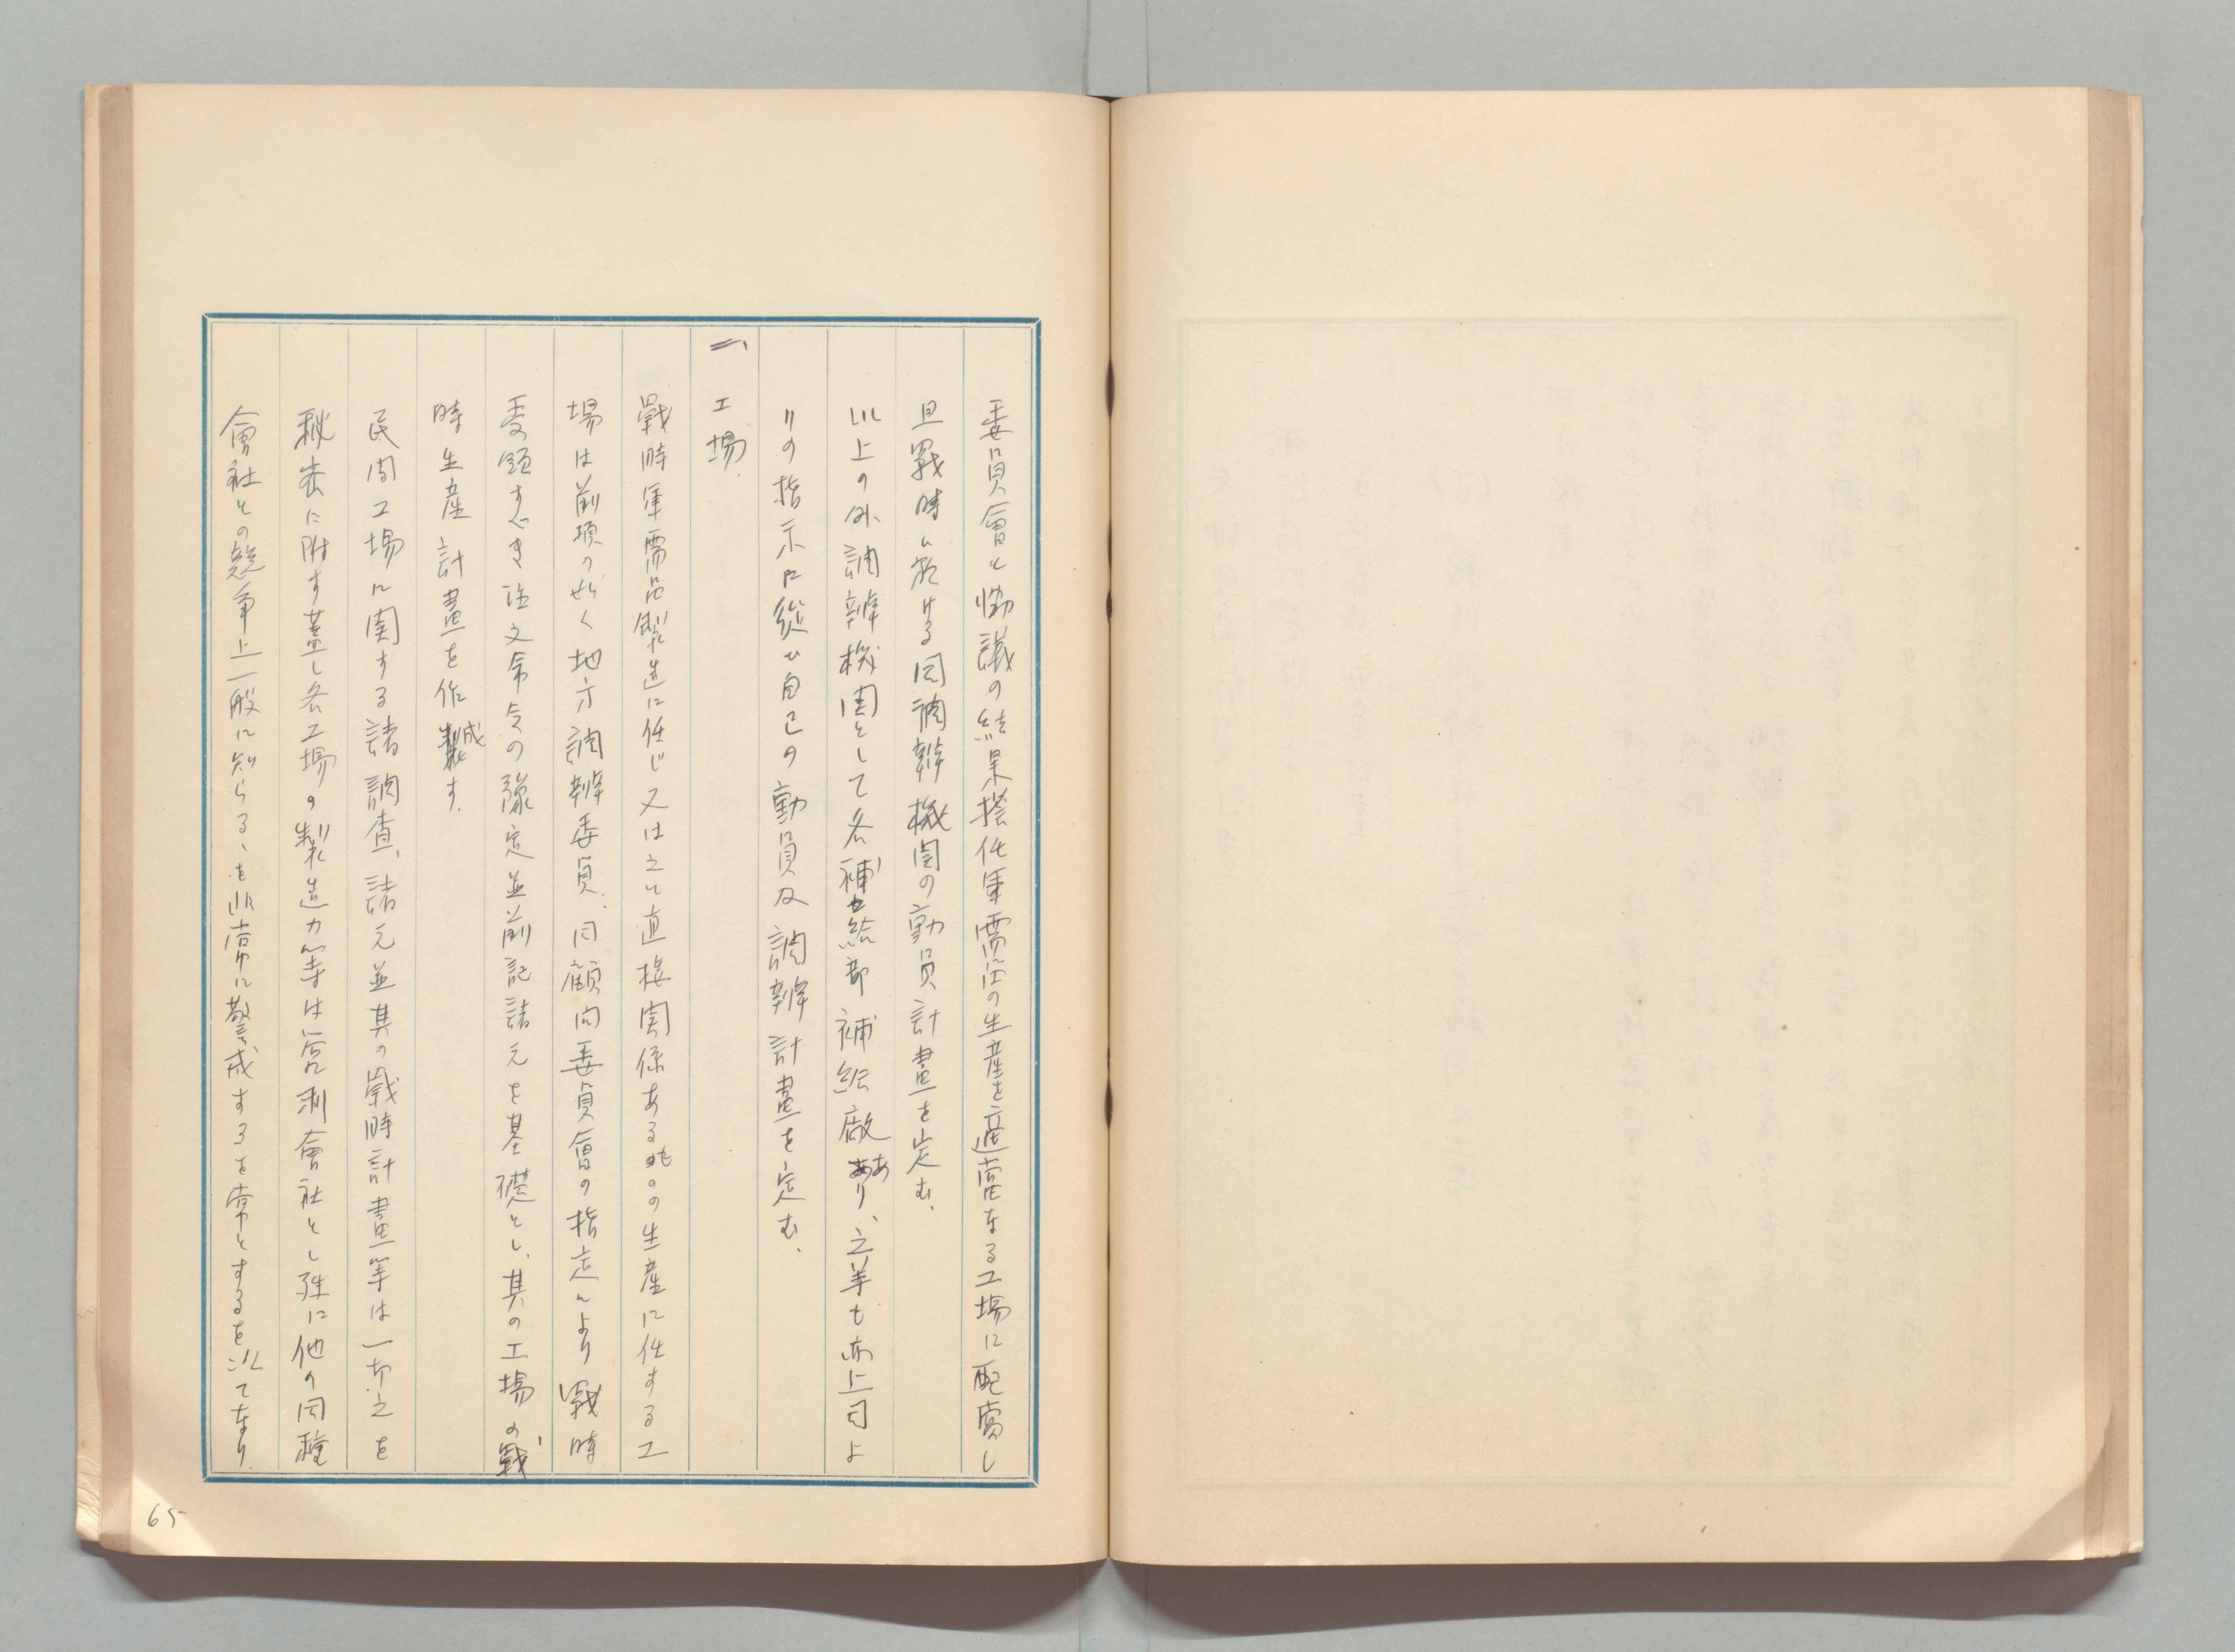 委員會と協議の結果擔任軍需品の生産を適當なる工場に配當し
且戰時に於ける同調辦機関の動員計畫を定む.
以上の外、調辦機関として各補給部補給廠あり、之等も亦上司よ
りの指示に從ひ自己の動員及調辦計畫を定む.
二、工場.
戰時軍需品製造に任じ又は之と直接関係あるものの生産に任する工
場は前項の如く地方調辦委員、同顧問委員會の指定により戰時
受領すべき註文命令の豫定並前記諸元を基礎とし、其の工場の戰
時生産計畫を作成す.
民間工場に関する諸調査、諸元並其の戰時計畫等は一切之を
秘密に附す蓋し各工場の製造力等は営利會社とし殊に他の同種
會社との競争上一般に知らるゝを非常に警戒するを常とするを以てなり.
65